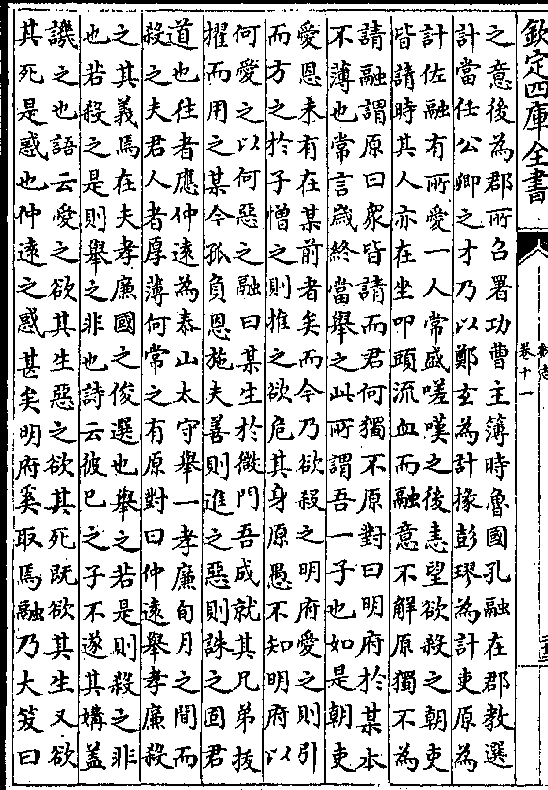 欽定四庫全書
之意後為郡所召署功曹主簿時魯國孔融在郡教選
計當任公卿之才乃以鄭玄為計掾彭璆為計吏原為
計佐融有所愛一人常盛嗟嘆之後恚望欲殺之朝吏
皆請時其人亦在坐叩頭流血而融意不解原獨不為
請融謂原曰衆皆請而君何獨不原對曰明府於某本
不薄也常言歲終當舉之此所謂吾一子也如是朝吏
受恩未有在某前者矣而今乃欲殺之明府愛之則引
而方之於子憎之則推之欲危其身原愚不知明府以
何愛之以何惡之融曰某生於微門吾成就其兄弟拔
擢而用之某今孤負恩施夫善則進之惡則誅之固君
道也往者應仲遠為泰山太守舉一孝廉旬月之間而
殺之夫君人者厚薄何常之有原對曰仲遠舉孝廉殺
之其義焉在夫孝廉國之俊選也舉之若是則殺之非
也若殺之是則舉之非也詩云彼已之子不遂其媾蓋
譏之也語云愛之欲其生惡之欲其死既欲其生又欲
其死是惑也仲遠之惑甚矣明府奚取焉融乃大笑曰
卷十一